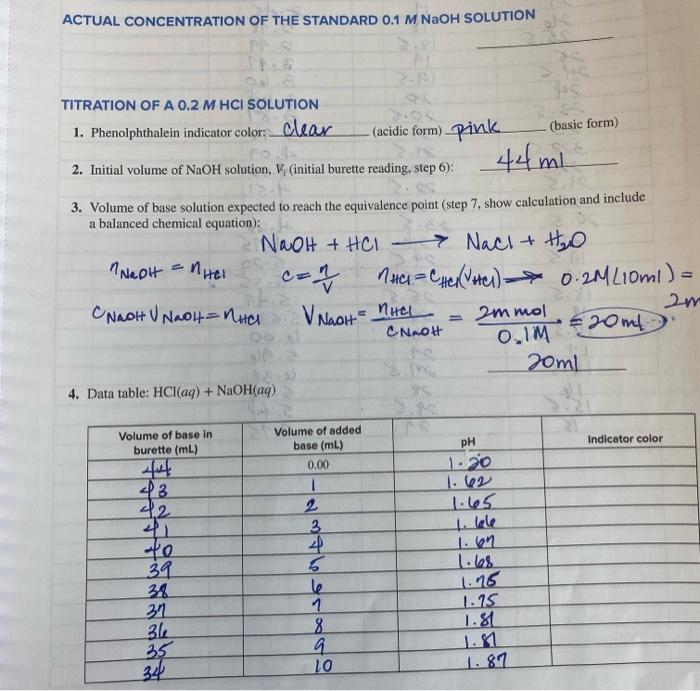 ACTUAL CONCENTRATION OF THE STANDARD 0.1 M NaOH SOLUTION
TITRATION OF A 0.2 M HCl SOLUTION
1. Phenolphthalein indicator color: clear (acidic form) pink (basic form)
2. Initial volume of NaOH solution, Vi (initial burette reading, step 6): 44 ml
3. Volume of base solution expected to reach the equivalence point (step 7, show calculation and include
a balanced chemical equation):
NaOH + HCl → NaCl + H₂O
nNaOH = nHCl C = n/V nHCl = CHCl(VHCl) → 0.2M(10ml) =
2m
CNaOH VNaOH = nHCl VNaOH = nHCl/CNaOH = 2mmol/0.1M = 20ml
20ml
4. Data table: HCl(aq) + NaOH(aq)
Volume of base in burette (mL) Volume of added base (mL) pH Indicator color
44 0.00 1.20
43 1 1.62
42 2 1.65
41 3 1.66
40 4 1.67
39 5 1.68
38 6 1.75
37 7 1.75
36 8 1.81
35 9 1.81
34 10 1.87